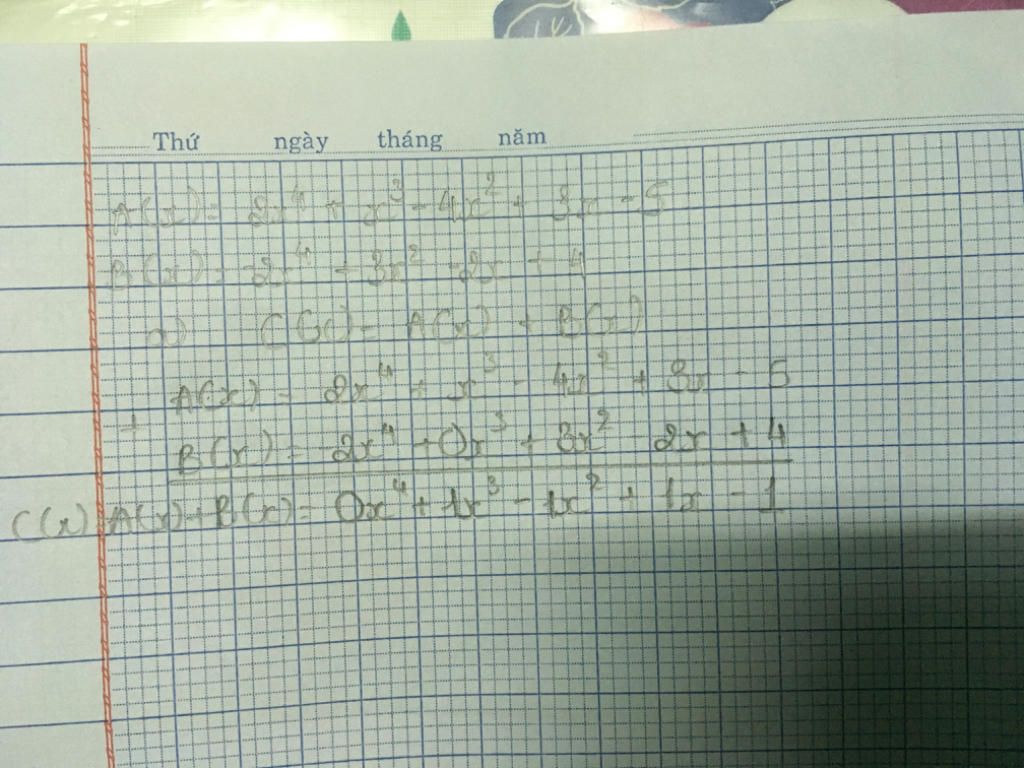 Thứ ngày tháng năm
A(x) = 2x⁴ + x³ - 4x² + 3x - 5
B(x) = -2x⁴ + 3x² - 2x + 4
a) C(x) = A(x) + B(x)
A(x) = 2x⁴ + x³ - 4x² + 3x - 5
+
B(x) = -2x⁴ + 0x³ + 3x² - 2x + 4
C(x) A(x) + B(x) = 0x⁴ + 1x³ - 1x² + 1x - 1